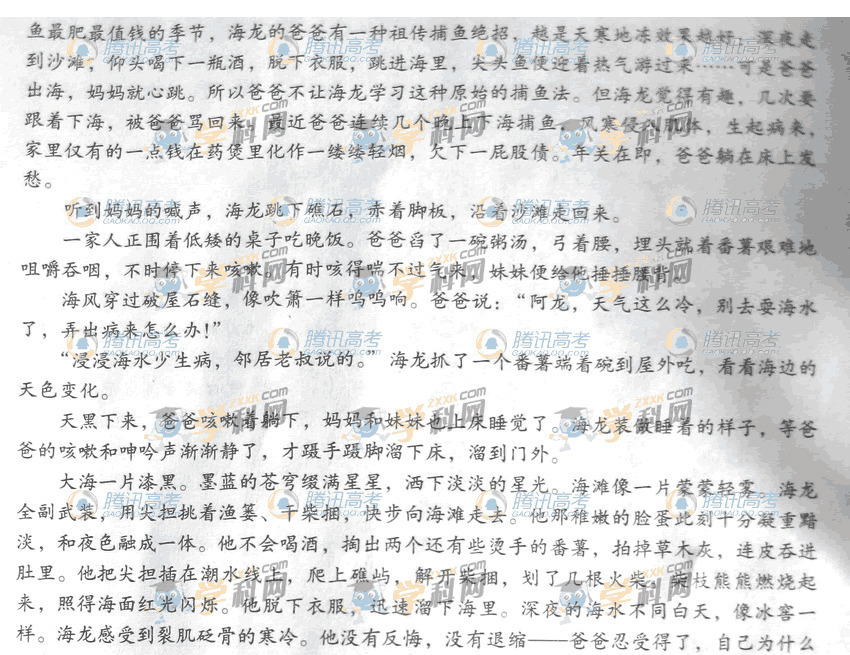 鱼最肥最值钱的季节，海龙的爸爸有一种祖传捕鱼绝招，越是天寒地冻效果越好：深夜走
到沙滩，仰头喝下一瓶酒，脱下衣服，跳进海里，尖头鱼便迎着热气游过来……可是爸爸
出海，妈妈就心跳。所以爸爸不让海龙学习这种原始的捕鱼法。但海龙觉得有趣，几次要
跟着下海，被爸爸骂回来。最近爸爸连续几个晚上下海捕鱼，风寒侵入肌体，生起病来，
家里仅有的一点钱在药煲里化作一缕缕轻烟，欠下一屁股债。年关在即，爸爸躺在床上发
愁。
听到妈妈的喊声，海龙跳下礁石，赤着脚板，沿着沙滩走回来。
一家人正围着低矮的桌子吃晚饭。爸爸舀了一碗粥汤，弓着腰，埋头就着番薯艰难地
咀嚼吞咽，不时停下来咳嗽。有时咳得喘不过气来，妹妹便给他捶捶腰背。
海风穿过破屋石缝，像吹箫一样呜呜响。爸爸说：“阿龙，天气这么冷，别去耍海水
了，弄出病来怎么办！”
“浸浸海水少生病，邻居老叔说的。”海龙抓了一个番薯端着碗到屋外吃，看看海边的
天色变化。
天黑下来，爸爸咳嗽着躺下，妈妈和妹妹也上床睡觉了。海龙装做睡着的样子，等爸
爸的咳嗽和呻吟声渐渐静了，才蹑手蹑脚溜下床，溜到门外。
大海一片漆黑。墨蓝的苍穹缀满星星，洒下淡淡的星光。海滩像一片蒙蒙轻雾。海龙
全副武装，用尖担挑着渔篓、干柴捆，快步向海滩走去。他那稚嫩的脸蛋此刻十分凝重黯
淡，和夜色融成一体。他不会喝酒，掏出两个还有些烫手的番薯，拍掉草木灰，连皮吞进
肚里。他把尖担插在潮水线上，爬上礁屿，解开柴捆，划了几根火柴。柴枝熊熊燃烧起
来，照得海面红光闪烁。他脱下衣服，迅速溜下海里。深夜的海水不同白天，像冰窖一
样。海龙感受到裂肌砭骨的寒冷。他没有反悔，没有退缩——爸爸忍受得了，自己为什么